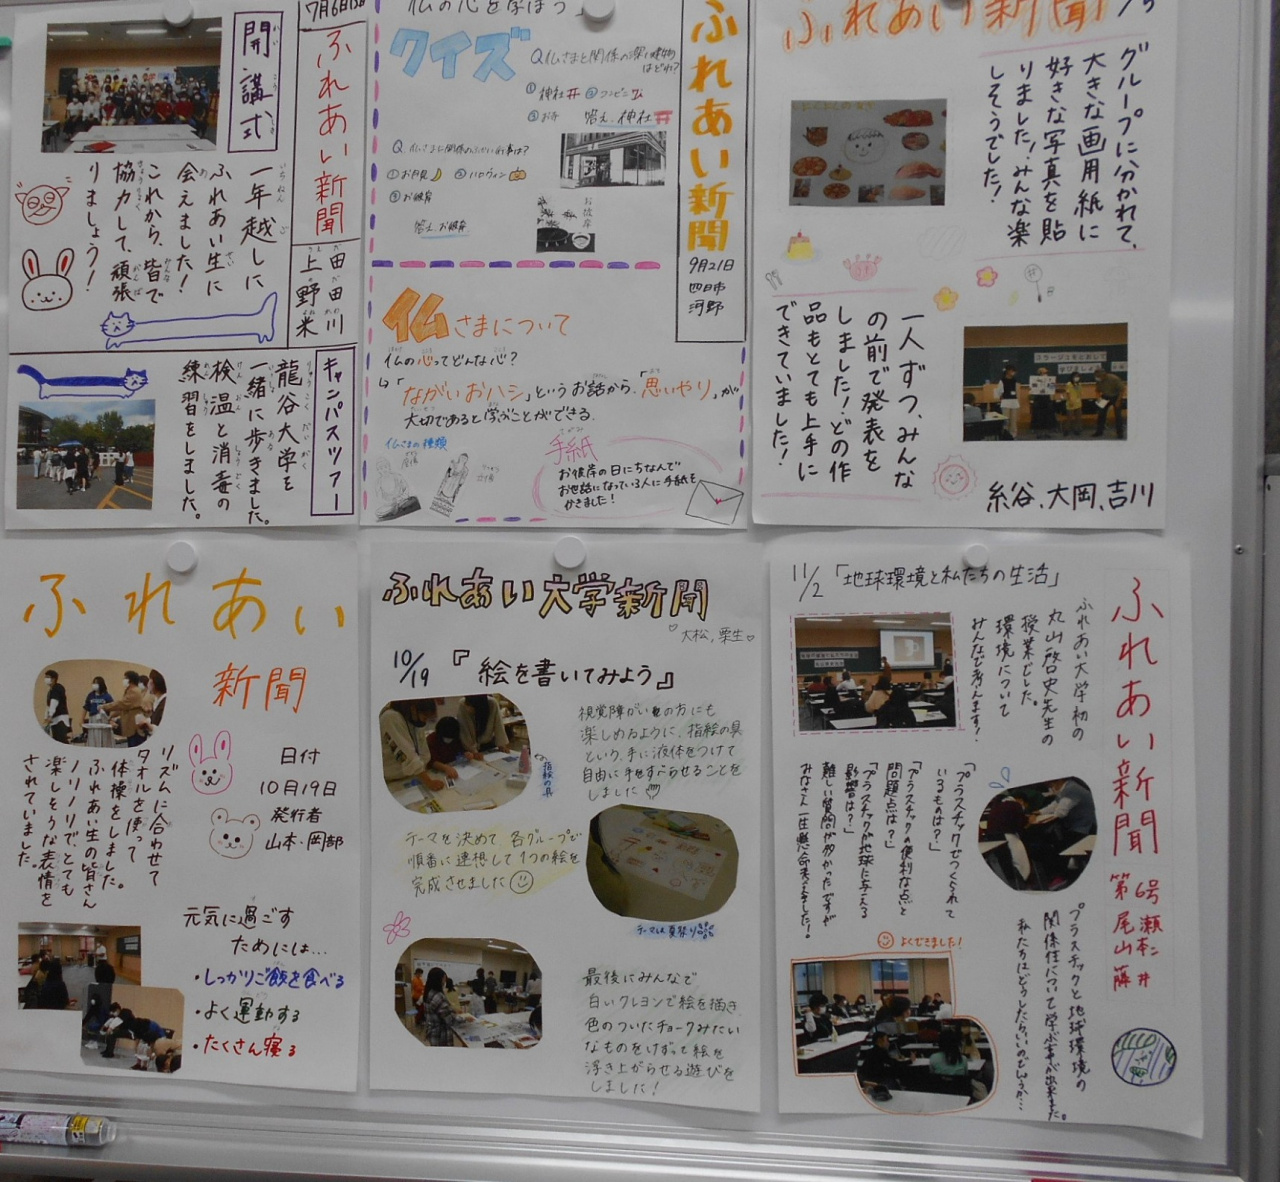 7月6日
ふれあい新聞
開講式
かい こう しき
一年越しに
ふれあい生に
会えました！
これから、皆で
協力して、頑張
りましょう！
キャンパスツアー
龍谷大学を
一緒に歩きました。
検温と消毒の
練習をしました。
仏の心を学ぼう
ふれあい新聞
9月21日
四日市
河野
クイズ
Q.仏さまと関係の深い建物
はどれ？
①神社 ②コンビニ
③お寺
答え.神社
Q.仏さまに関係のふかい行事は？
①お月見 ②ハロウィン
③お彼岸
答え.お彼岸
お彼岸
仏さまについて
仏の心ってどんな心？
↳「ながいおハシ」というお話から、「思いやり」が
大切であると学ぶことができる。
仏さまの種類
手紙
お彼岸の日にちなんで
お世話になっている人に手紙を
かきました！
ふれあい新聞
グループに分かれて、
大きな画用紙に
好きな写真を貼
りました！みんな楽
しそうでした！
一人ずつ、みんな
の前で発表を
しました！どの作
品もとても上手に
できていました！
糸谷、大岡、吉川
ふれあい
新聞
日付
10月19日
発行者
山本・岡部
リズムに合わせて
タオルを使って
体操をしました。
ふれあい生の皆さん
ノリノリでとても
楽しそうな表情を
されていました。
元気に過ごす
ためには…
・しっかりご飯を食べる
・よく運動する
・たくさん寝る
ふれあい大学新聞
大松,栗生
10/19『絵を書いてみよう』
視覚障がいの方にも
楽しめるように、指絵の具
という、手に液体をつけて
自由に手をすべらせることを
しました
指絵の具
テーマを決めて 各グループで
順番に連想して1つの絵を
完成させました
テーマは夏祭り
最後にみんなで
白いクレヨンで絵を描き
色のついたチョークみたい
なものをけずって絵を
浮き上がらせる遊びを
しました！
11/2「地球環境と私たちの生活」
ふれあい新聞 第6号
瀬本 井
尾山 藤
ふれあい大学初の
丸山啓史先生の
授業でした。
環境について
みんなで考えます！
「プラスチックでつくられて
いるものは？」
「プラスチックの便利な点と
問題点は？」
「プラスチックが地球に与える
影響は？」
難しい質問が多かったですが
みなさん一生懸命考えました！
よくできました！
プラスチックと地球環境の
関係性について学ぶ事が出来ました。
私たちはどうしたらいいのでしょうか…